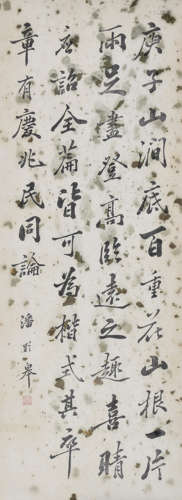 庾子山澗底百重花山根一片
雨足盡登高臨遠之趣喜晴
應詔全篇皆可為楷式其卒
章有慶兆民同論
潘齡皋